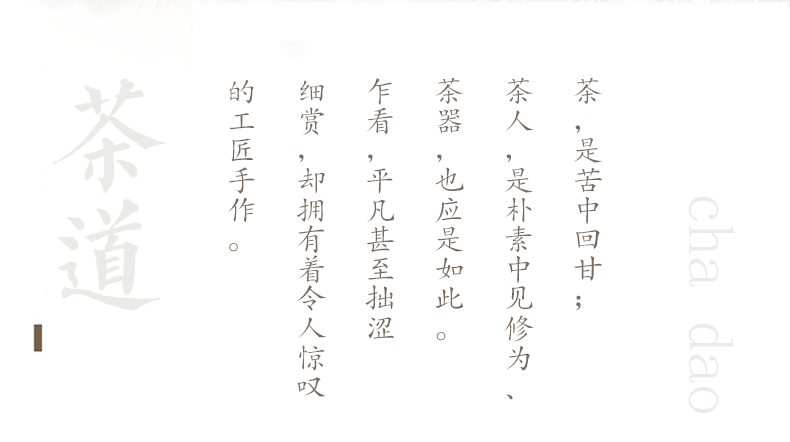 cha dao
茶，是苦中回甘；
茶人，是朴素中见修为、
茶器，也应是如此。
乍看，平凡甚至拙涩
细赏，却拥有着令人惊叹
的工匠手作。
茶道